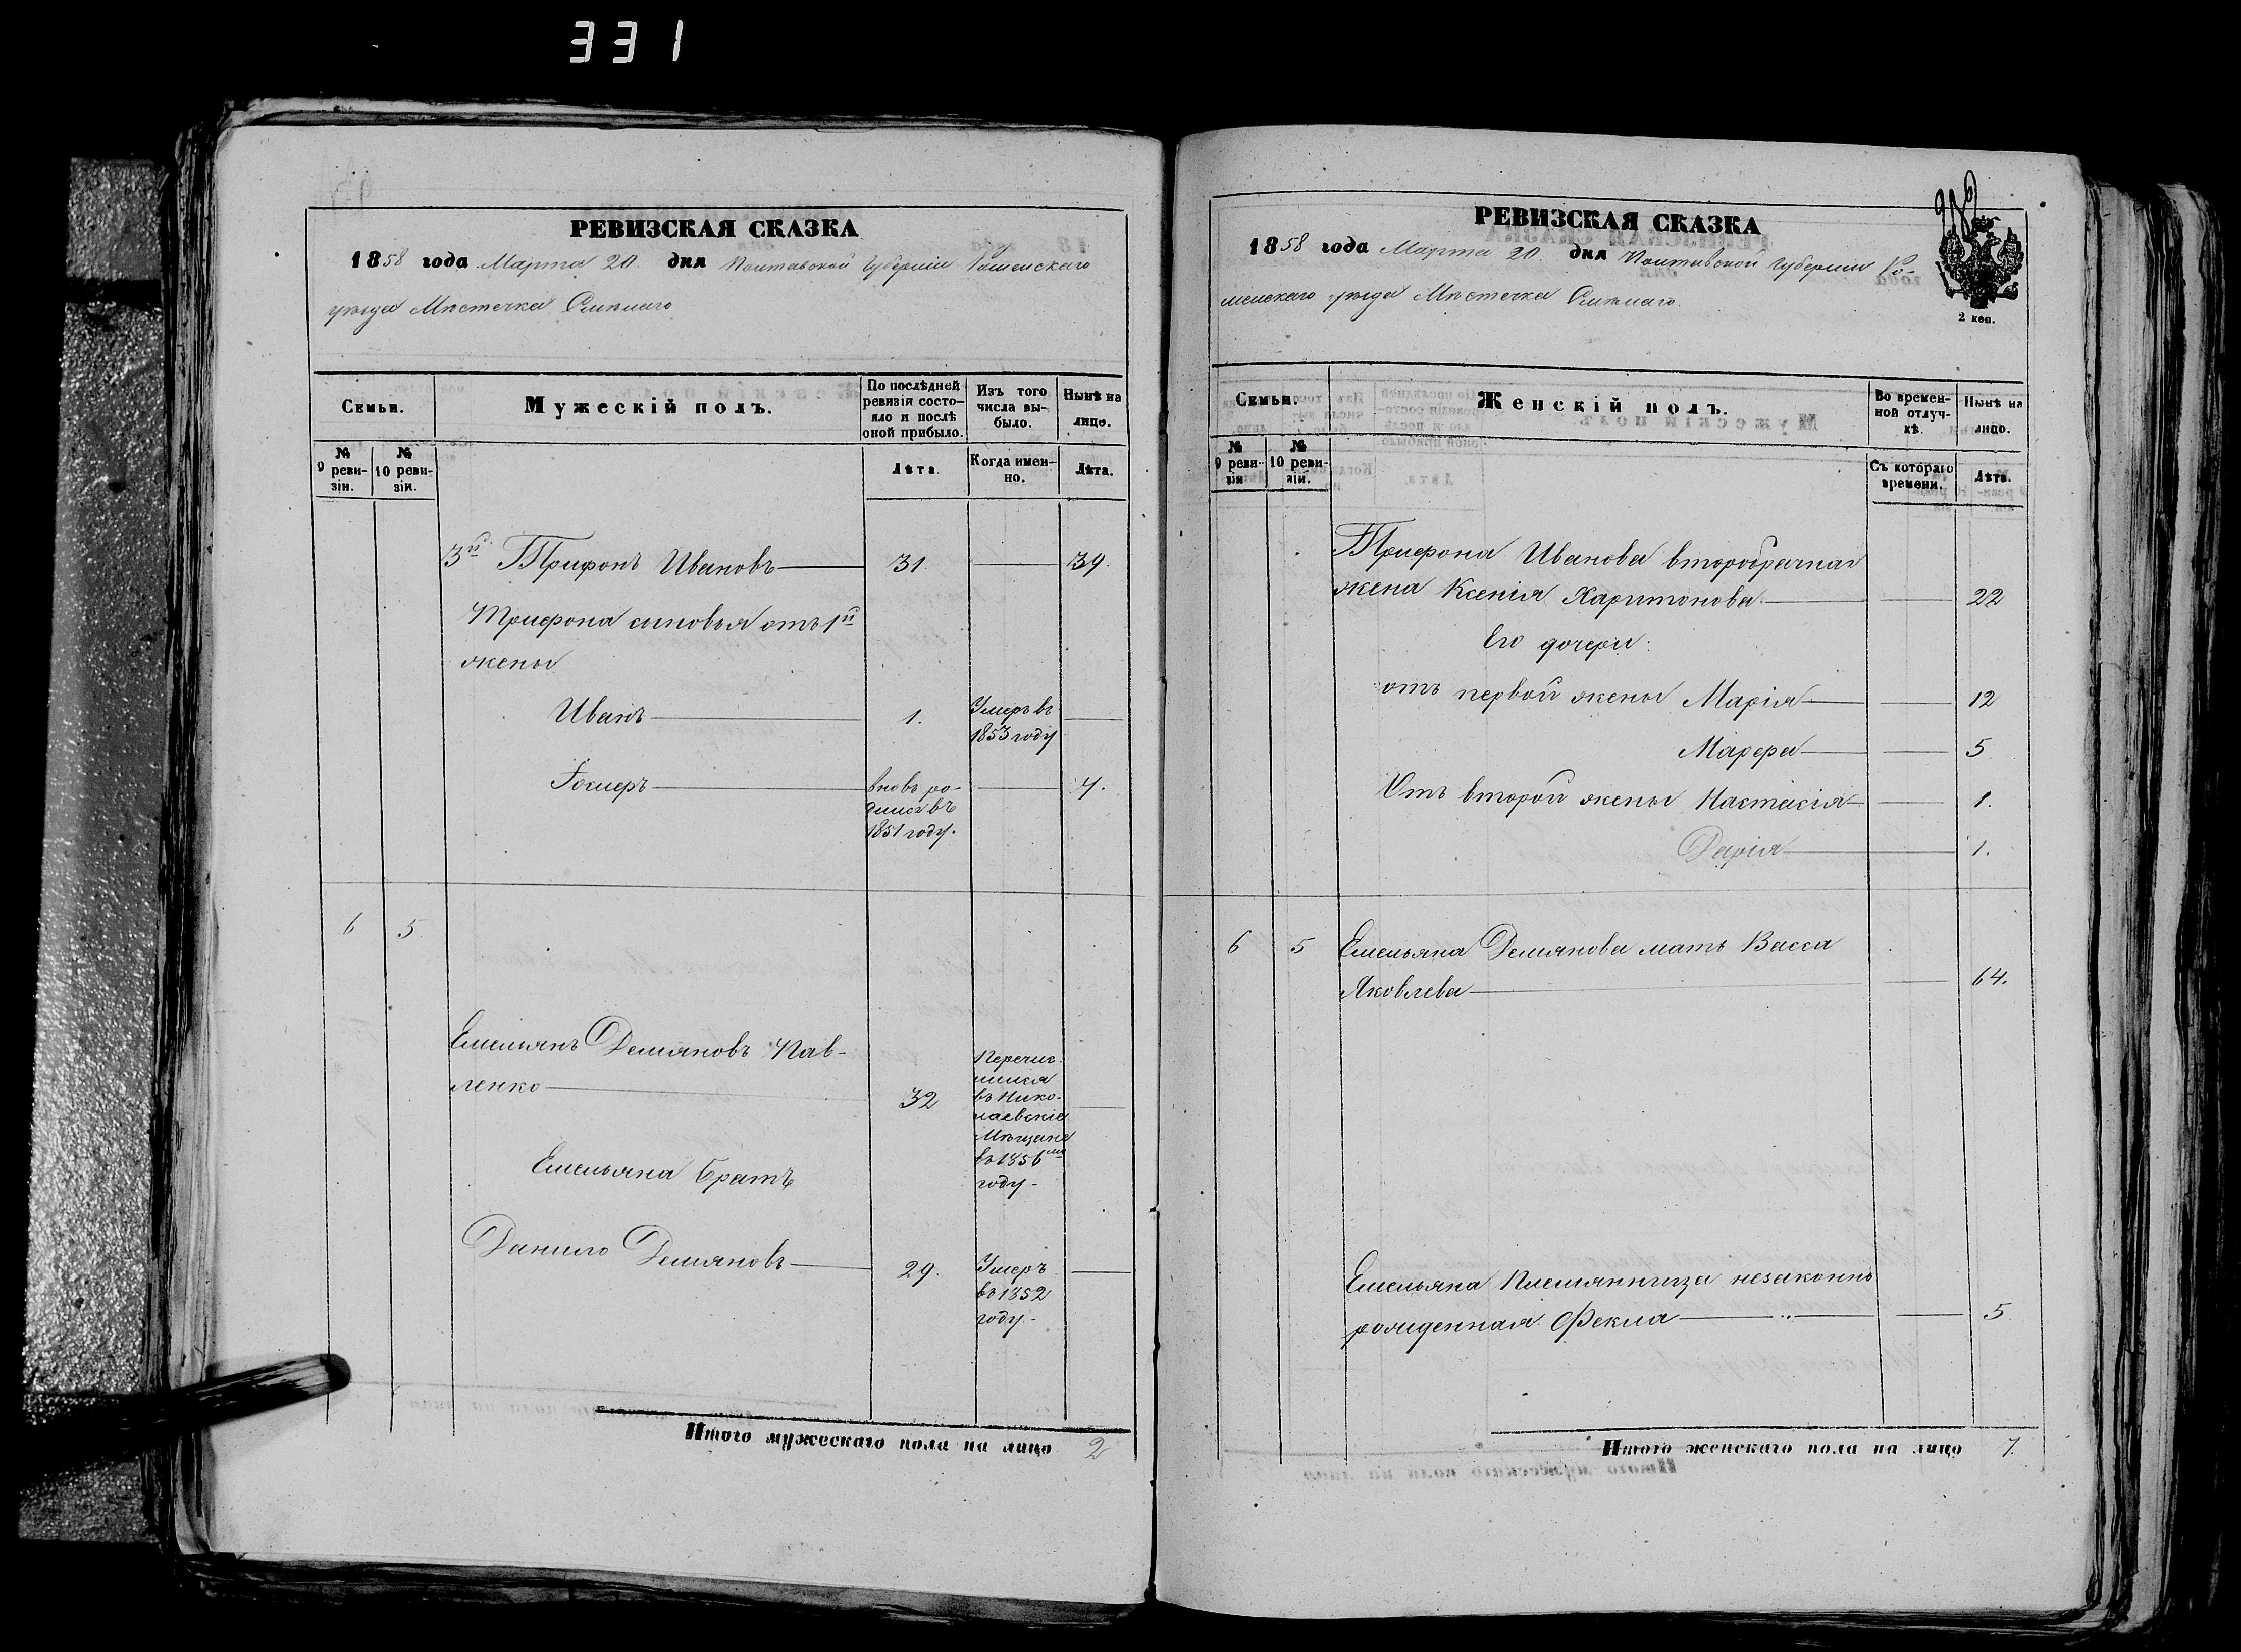 331
РЕВИЗСКАЯ СКАЗКА
1858 года Марта 20. дня Полтавской Губерніи Роменскаго
уѣзда Мѣстечка Смѣлаго
Семьи.
Мужескій полъ.
По послѣдней ревизіи состояло и послѣ оной прибыло.
Изъ того числа выбыло.
Нынѣ на лицо.
№ 9 ревизіи.
№ 10 ревизіи.
Лѣта.
Когда именно.
Лѣта.
3й Трифонъ Ивановъ 31. 39.
Трифона сыновья отъ 1й
жены
Иванъ 1. Умеръ въ
1853 году
вновь ро-
дился въ
1851 году.
7.
6 5
Емельянъ Демяновъ Пав-
ленко 32
Перечис-
лился
въ Нико-
лаевскіе
Мѣщане
въ 1856мъ
году-
Емельяна братъ
Данило Демяновъ 29. Умеръ
въ 1852
году-
Итого мужескаго пола на лицо 2
РЕВИЗСКАЯ СКАЗКА
1858 года Марта 20. дня Полтавской Губерніи Ро-
менскаго уѣзда Мѣстечка Смѣлаго.
2 коп.
Семьи.
Женскій полъ.
Во временной отлучкѣ.
Нынѣ на лицо.
№ 9 ревизіи
№ 10 ревизіи.
Съ котораго времени.
Лѣта.
Трифона Иванова второбрачная
жена Ксенія Харитонова. 22
Его дочери:
отъ первой жены Марія 12
Марфа 5
Отъ второй жены Настасія 1.
Дарія 1.
6 5 Емельяна Демянова мать Васса
Яковлева 64.
Емельяна Племянница незаконно
рожденная Фекла 5
Итого женскаго пола на лицо 7.